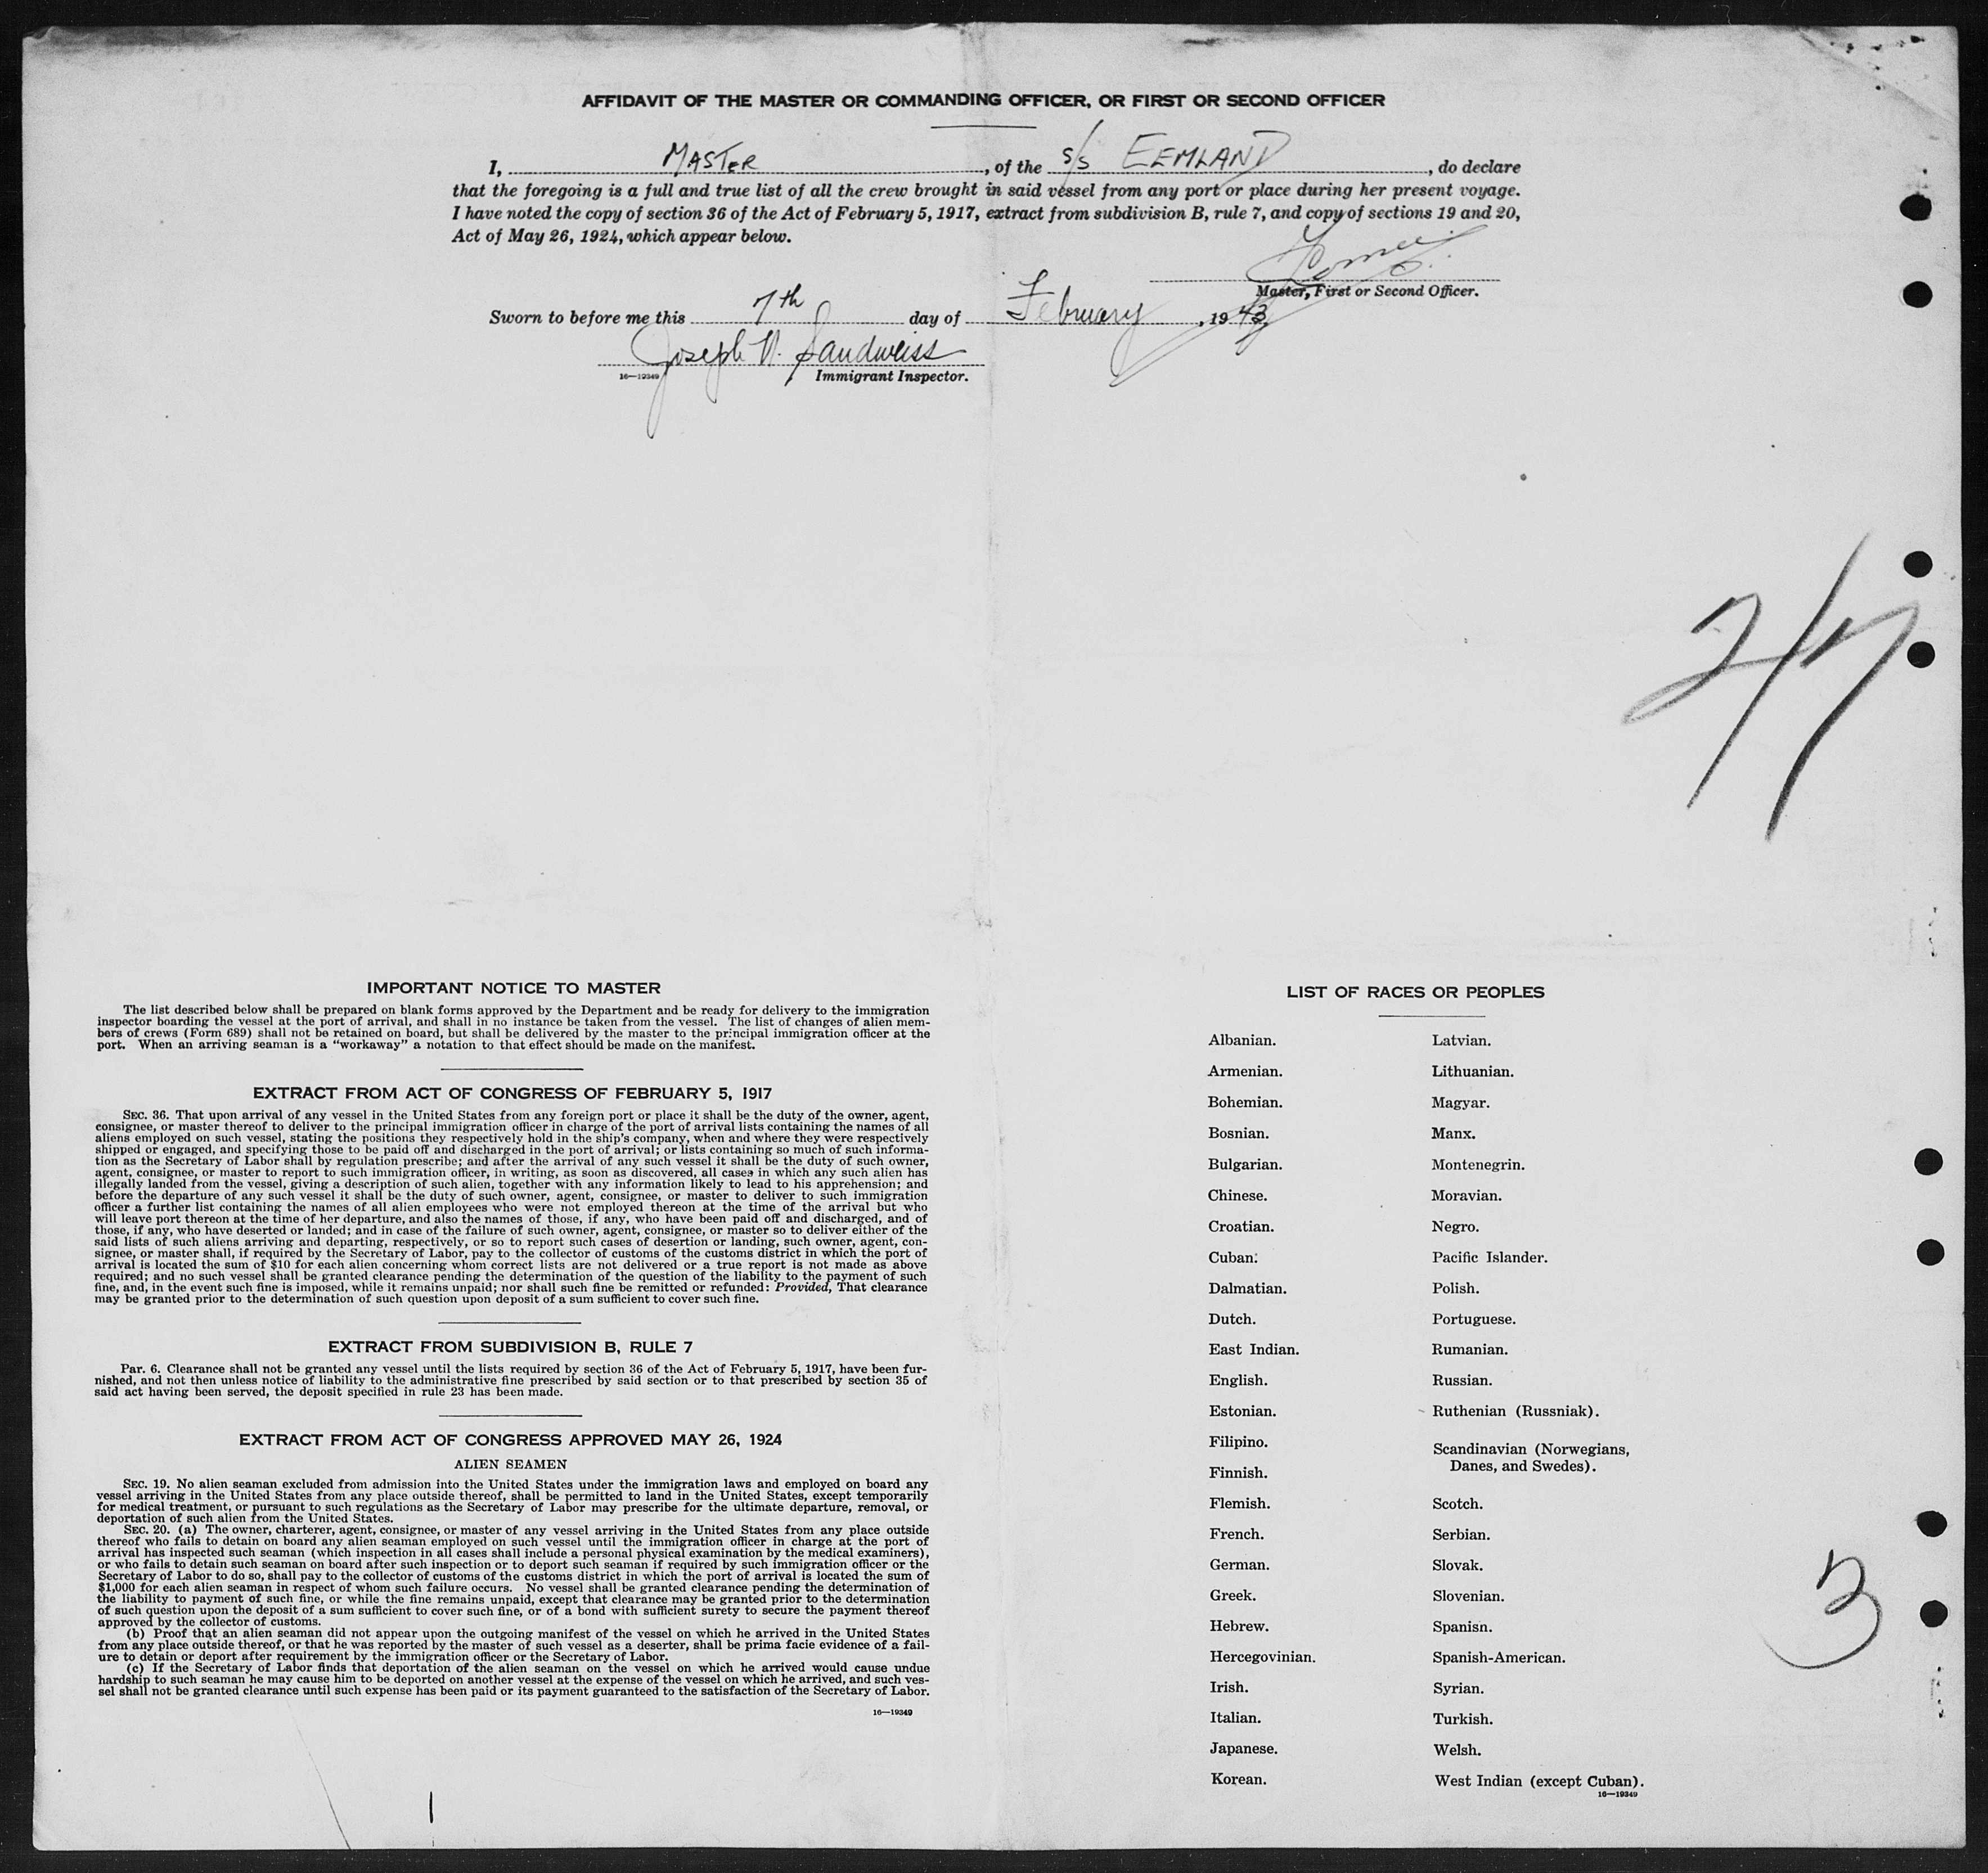 AFFIDAVIT OF THE MASTER OR COMMANDING OFFICER, OR FIRST OR SECOND OFFICER
I, MASTER, of the S/S EEMLAND, do declare
that the foregoing is a full and true list of all the crew brought in said vessel from any port or place during her present voyage.
I have noted the copy of section 36 of the Act of February 5, 1917, extract from subdivision B, rule 7, and copy of sections 19 and 20,
Act of May 26, 1924, which appear below.
Master, First or Second Officer.
Sworn to before me this 7th day of February, 1943,
Joseph Sandweiss
16—19349 Immigrant Inspector.
2/7
IMPORTANT NOTICE TO MASTER
The list described below shall be prepared on blank forms approved by the Department and be ready for delivery to the immigration
inspector boarding the vessel at the port of arrival, and shall in no instance be taken from the vessel. The list of changes of alien mem-
bers of crews (Form 689) shall not be retained on board, but shall be delivered by the master to the principal immigration officer at the
port. When an arriving seaman is a "workaway" a notation to that effect should be made on the manifest.
EXTRACT FROM ACT OF CONGRESS OF FEBRUARY 5, 1917
SEC. 36. That upon arrival of any vessel in the United States from any foreign port or place it shall be the duty of the owner, agent,
consignee, or master thereof to deliver to the principal immigration officer in charge of the port of arrival lists containing the names of all
aliens employed on such vessel, stating the positions they respectively hold in the ship's company, when and where they were respectively
shipped or engaged, and specifying those to be paid off and discharged in the port of arrival; or lists containing so much of such informa-
tion as the Secretary of Labor shall by regulation prescribe; and after the arrival of any such vessel it shall be the duty of such owner,
agent, consignee, or master to report to such immigration officer, in writing, as soon as discovered, all cases in which any such alien has
illegally landed from the vessel, giving a description of such alien, together with any information likely to lead to his apprehension; and
before the departure of any such vessel it shall be the duty of such owner, agent, consignee, or master to deliver to such immigration
officer a further list containing the names of all alien employees who were not employed thereon at the time of the arrival but who
will leave port thereon at the time of her departure, and also the names of those, if any, who have been paid off and discharged, and of
those, if any, who have deserted or landed; and in case of the failure of such owner, agent, consignee, or master so to deliver either of the
said lists of such aliens arriving and departing, respectively, or so to report such cases of desertion or landing, such owner, agent, con-
signee, or master shall, if required by the Secretary of Labor, pay to the collector of customs of the customs district in which the port of
arrival is located the sum of $10 for each alien concerning whom correct lists are not delivered or a true report is not made as above
required; and no such vessel shall be granted clearance pending the determination of the question of the liability to the payment of such
fine, and, in the event such fine is imposed, while it remains unpaid; nor shall such fine be remitted or refunded: Provided, That clearance
may be granted prior to the determination of such question upon deposit of a sum sufficient to cover such fine.
EXTRACT FROM SUBDIVISION B, RULE 7
Par. 6. Clearance shall not be granted any vessel until the lists required by section 36 of the Act of February 5, 1917, have been fur-
nished, and not then unless notice of liability to the administrative fine prescribed by said section or to that prescribed by section 35 of
said act having been served, the deposit specified in rule 23 has been made.
EXTRACT FROM ACT OF CONGRESS APPROVED MAY 26, 1924
ALIEN SEAMEN
SEC. 19. No alien seaman excluded from admission into the United States under the immigration laws and employed on board any
vessel arriving in the United States from any place outside thereof, shall be permitted to land in the United States, except temporarily
for medical treatment, or pursuant to such regulations as the Secretary of Labor may prescribe for the ultimate departure, removal, or
deportation of such alien from the United States.
SEC. 20. (a) The owner, charterer, agent, consignee, or master of any vessel arriving in the United States from any place outside
thereof who fails to detain on board any alien seaman employed on such vessel until the immigration officer in charge at the port of
arrival has inspected such seaman (which inspection in all cases shall include a personal physical examination by the medical examiners),
or who fails to detain such seaman on board after such inspection or to deport such seaman if required by such immigration officer or the
Secretary of Labor to do so, shall pay to the collector of customs of the customs district in which the port of arrival is located the sum of
$1,000 for each alien seaman in respect of whom such failure occurs. No vessel shall be granted clearance pending the determination of
the liability to payment of such fine, or while the fine remains unpaid, except that clearance may be granted prior to the determination
of such question upon the deposit of a sum sufficient to cover such fine, or of a bond with sufficient surety to secure the payment thereof
approved by the collector of customs.
(b) Proof that an alien seaman did not appear upon the outgoing manifest of the vessel on which he arrived in the United States
from any place outside thereof, or that he was reported by the master of such vessel as a deserter, shall be prima facie evidence of a fail-
ure to detain or deport after requirement by the immigration officer or the Secretary of Labor.
(c) If the Secretary of Labor finds that deportation of the alien seaman on the vessel on which he arrived would cause undue
hardship to such seaman he may cause him to be deported on another vessel at the expense of the vessel on which he arrived, and such ves-
sel shall not be granted clearance until such expense has been paid or its payment guaranteed to the satisfaction of the Secretary of Labor.
16—19349
LIST OF RACES OR PEOPLES
Albanian. Latvian.
Armenian. Lithuanian.
Bohemian. Magyar.
Bosnian. Manx.
Bulgarian. Montenegrin.
Chinese. Moravian.
Croatian. Negro.
Cuban. Pacific Islander.
Dalmatian. Polish.
Dutch. Portuguese.
East Indian. Rumanian.
English. Russian.
Estonian. Ruthenian (Russniak).
Filipino. Scandinavian (Norwegians,
Finnish. Danes, and Swedes).
Flemish. Scotch.
French. Serbian.
German. Slovak.
Greek. Slovenian.
Hebrew. Spanisn.
Hercegovinian. Spanish-American.
Irish. Syrian.
Italian. Turkish.
Japanese. Welsh.
Korean. West Indian (except Cuban).
16—19349
3